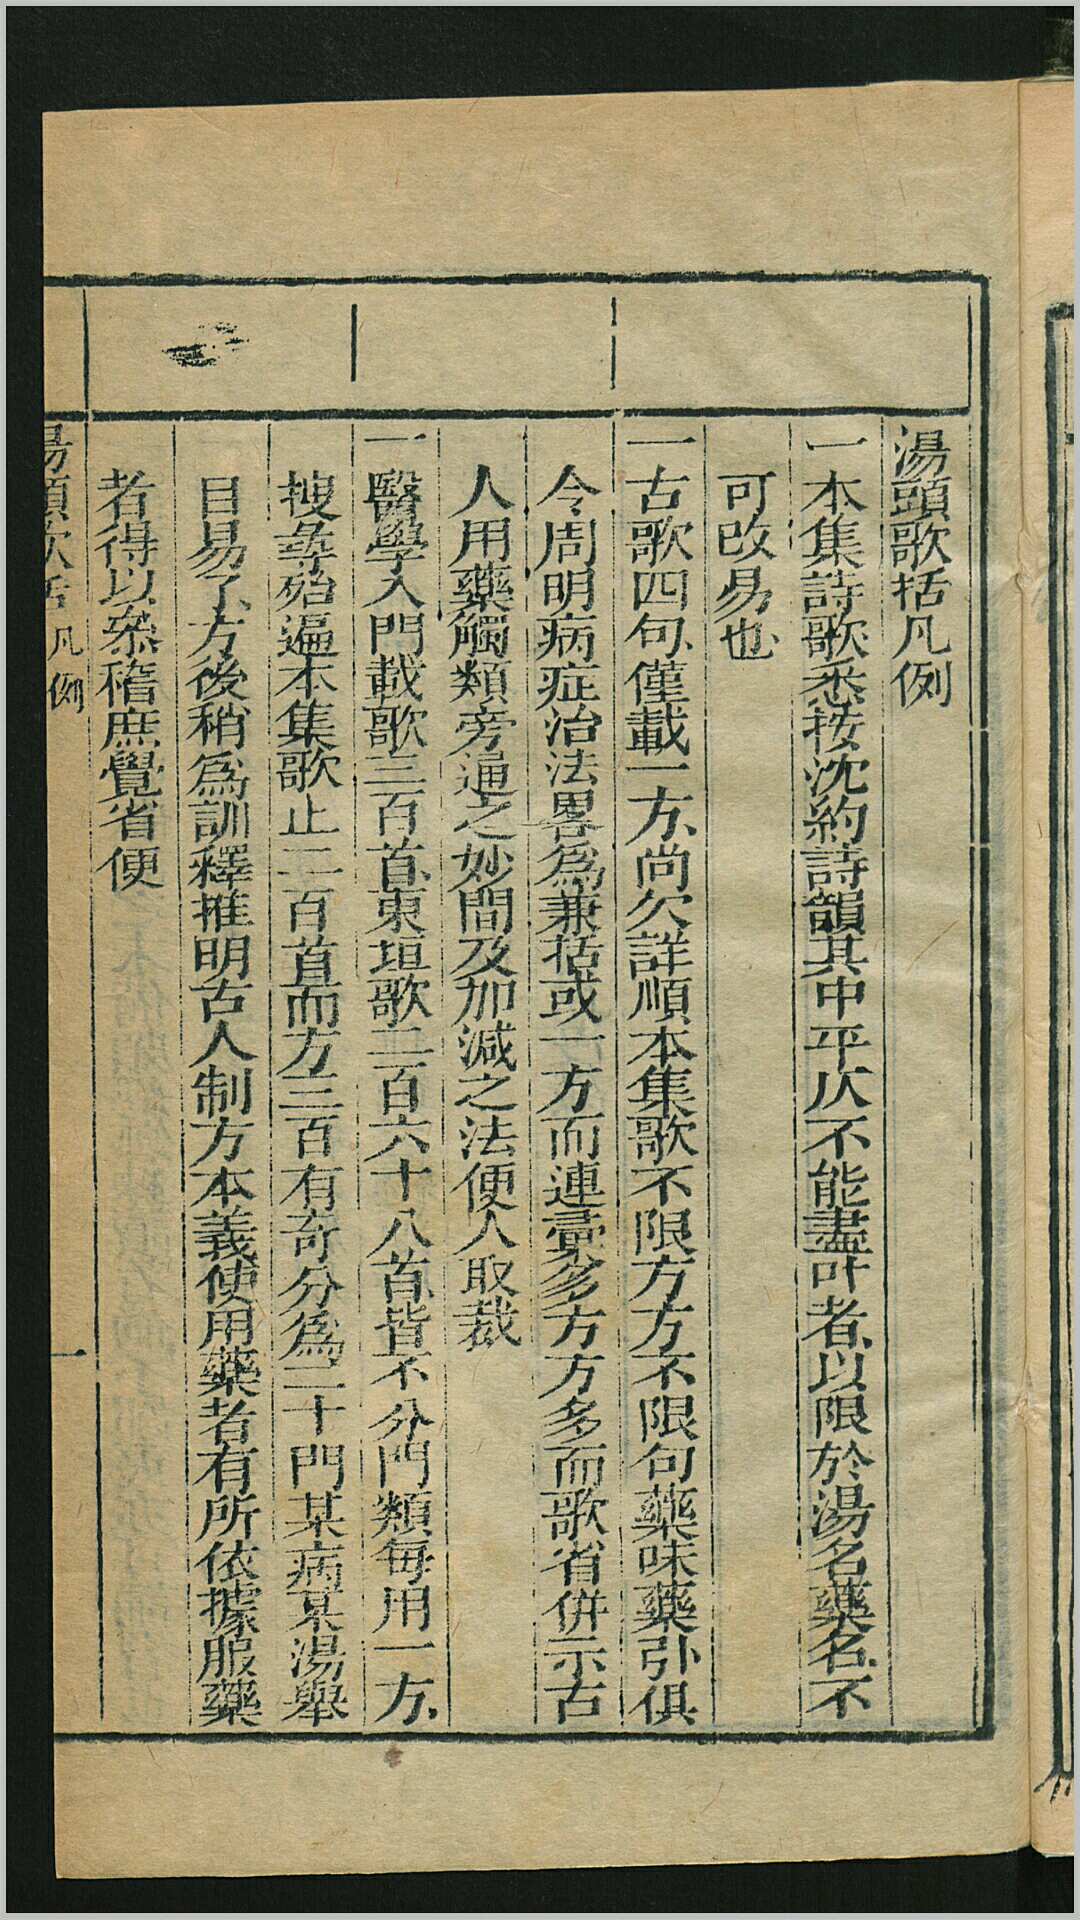 湯頭歌括凡例
一本集詩歌悉按沈約詩韻其中平仄不能盡叶者、以限於湯名藥名、不
可改易也、
一古歌四句、僅載一方、尚欠詳順、本集歌不限方方不限句藥味藥引俱
令周明病症治法畧為兼括或一方而連彙多方方多而歌省併示古
人用藥觸類旁通之妙間及加減之法便人取裁
一醫學入門載歌三百首、東垣歌二百六十八首、皆不分門類每用一方、
搜尋殆遍本集歌止二百首而方三百有奇分為二十門某病某湯舉
目易了、方後稍為訓釋推明古人制方本義使用藥者有所依據服藥
者得以叅稽庶覺省便
湯頭歌括 凡例 一